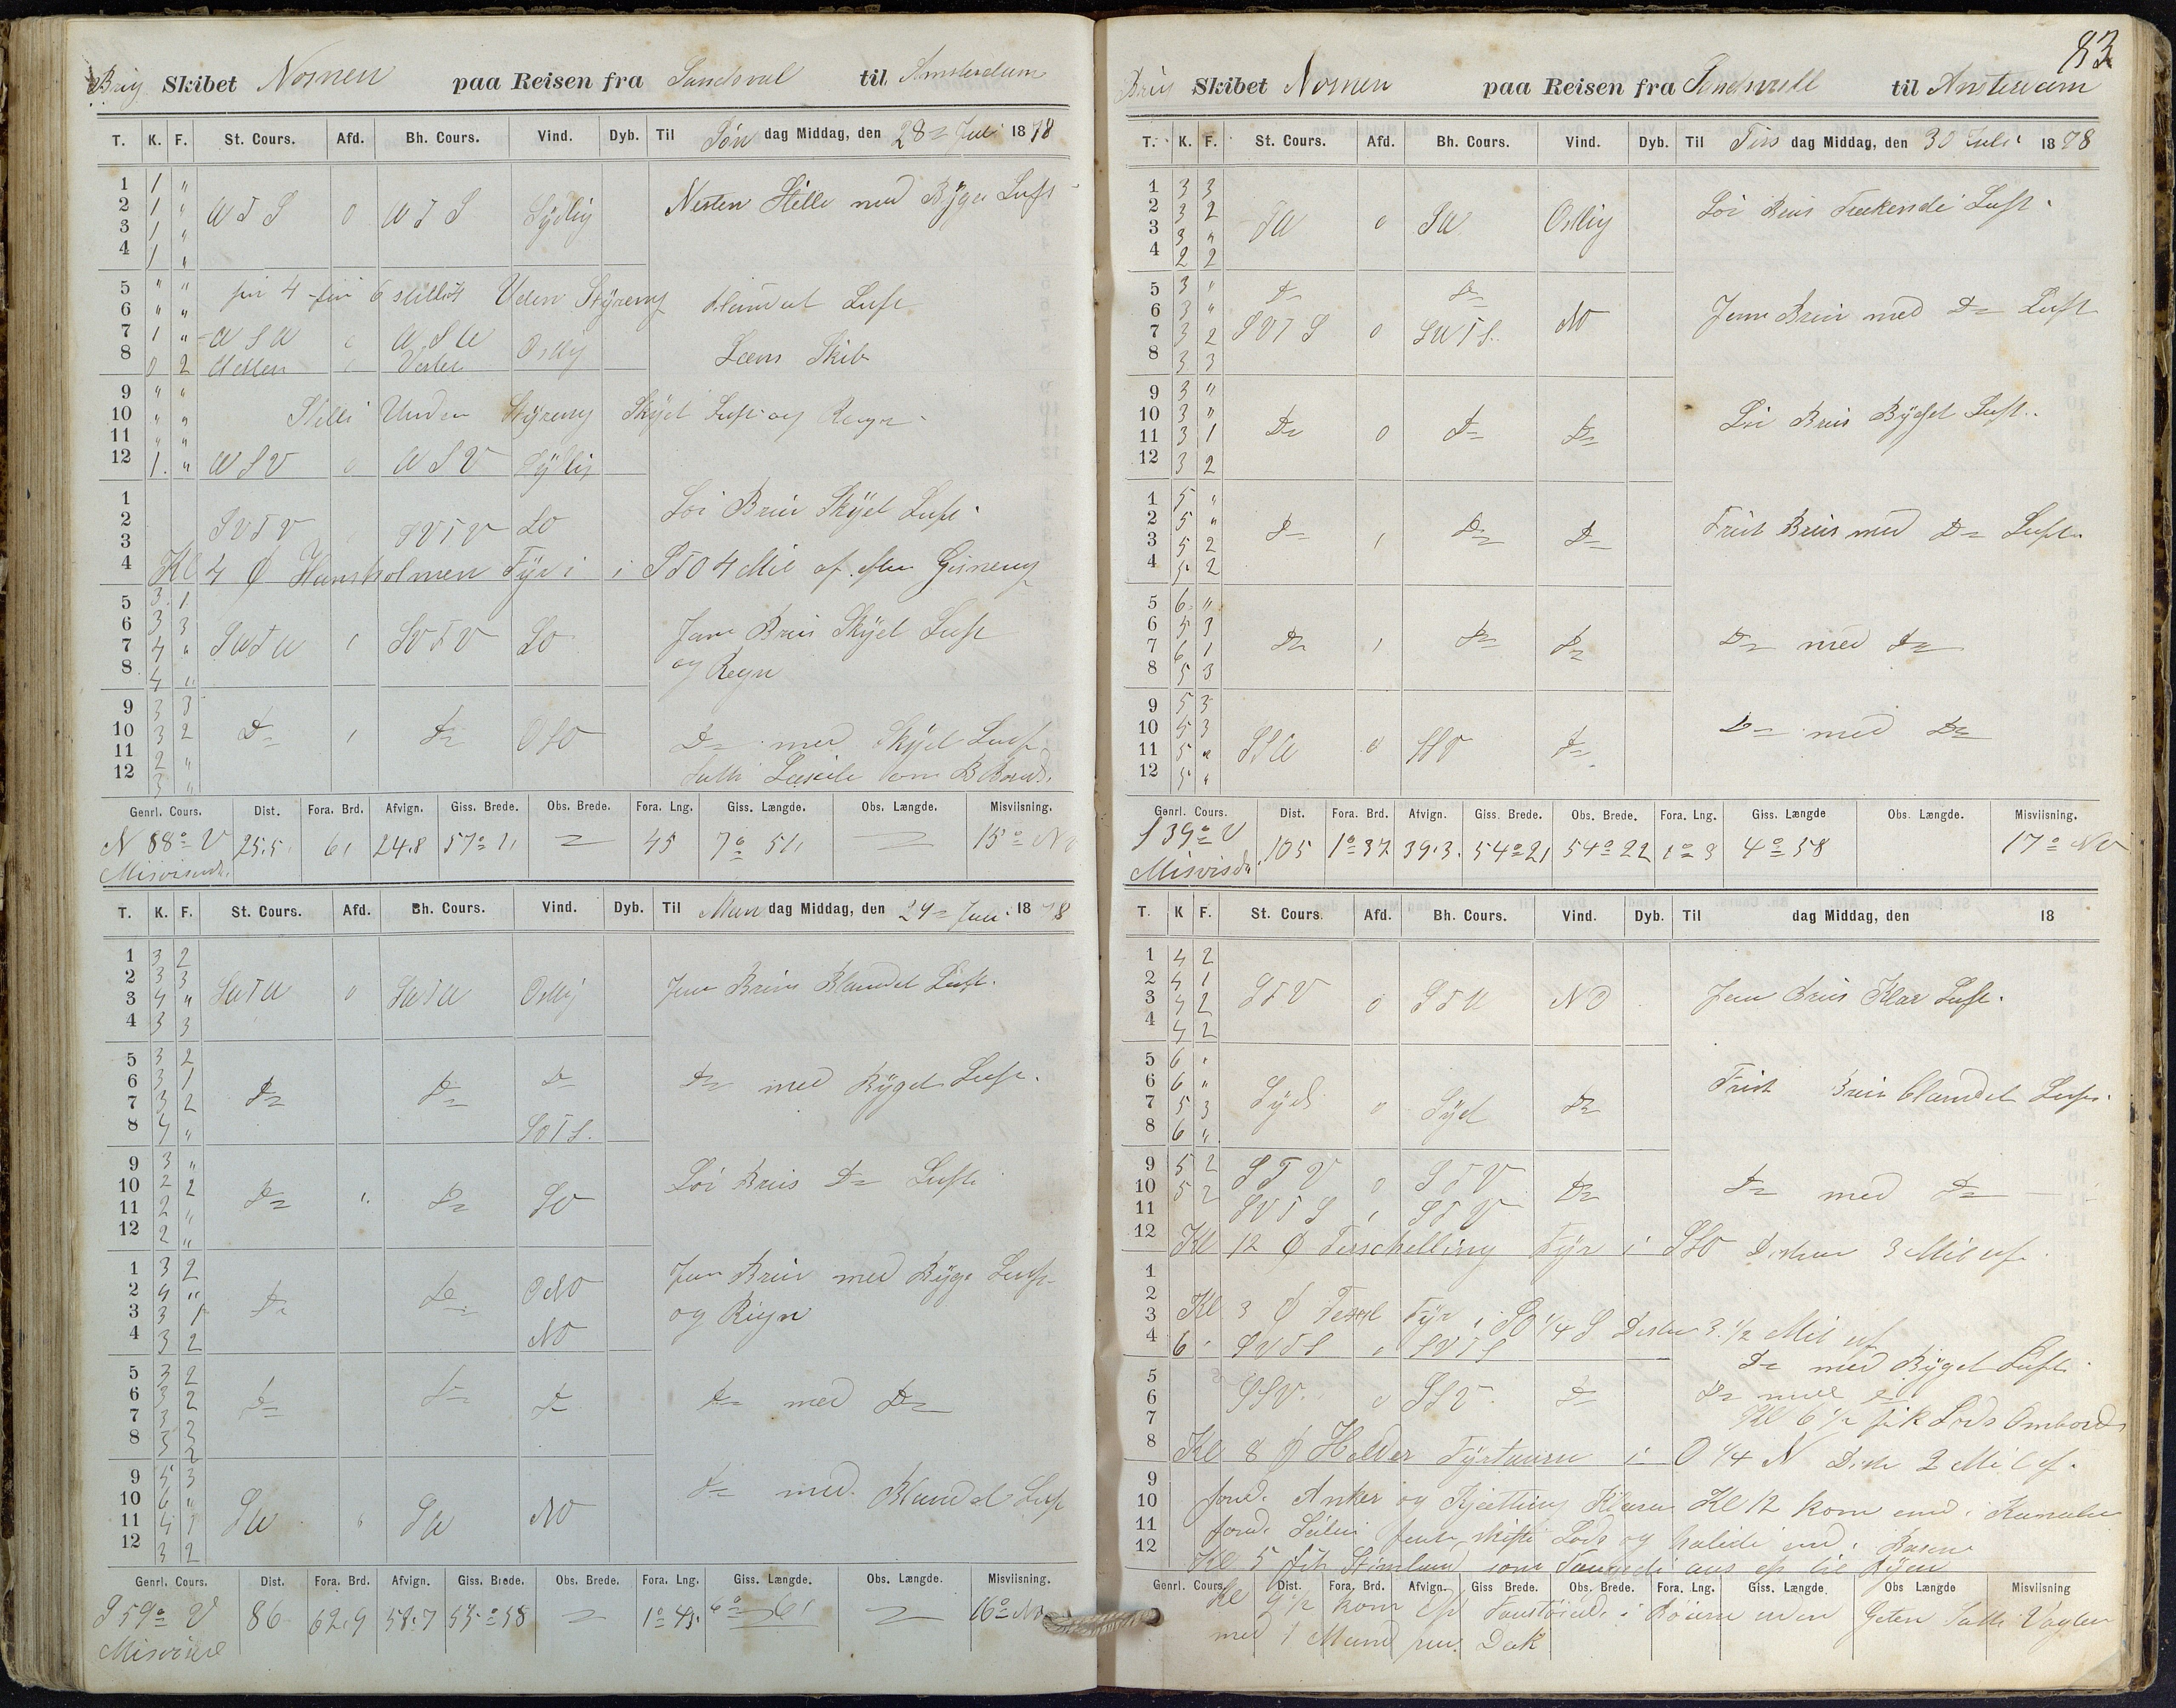 Brig Skibet Nornen paa Reisen fra Sandsval til Amsterdam
T. K. F. St. Cours. Afd. Bh. Cours. Vind. Dyb. Til Søn dag Middag, den 28 Juli 1878
1 1 "
2 1 " WTS 0 WTS Sydlig Nesten Stille med Byget Luft
3 1 "
4 1 "
5 " " fra 4 til 6 stille Uden Styreng blandet Luft
6 " "
7 1 " WSW WSW Ostlig Læns Skib
8 0 2 Vesten Vesten
9 " "
10 " " Stille Uden Styreng Skyet Luft og Regn
11 " "
12 1 " WSV 0 WSV Sydlig
1
2 SVTV SVTV SO Løi Bris Skyet Luft
3
4 Kl 4 Ø Hanstholmen Fyr i STO 4 Mil af efter Gisneng
5 3 1
6 3 3 SWTW SVTV SO Jevn Bris Skyet Luft
7 4 " og Regn
8 4 "
9 3 3
10 3 2 Do Do OSO Do med Skyet Luft
11 2 "
12 3 "
Genrl. Cours. Dist. Fora. Brd. Afvign. Giss. Brede. Obs. Brede. Fora. Lng. Giss. Længde. Obs. Længde. Misviisning.
N 88° V 25.5 61 24.8 57° 45 7° 51 15° NV
Misvisende
T. K. F. St. Cours. Afd. Bh. Cours. Vind. Dyb. Til Man dag Middag, den 29 Juli 1878
1 3 2
2 3 3 SWTW 0 SWTW Ostlig Jevn Bris Blandet Luft
3 4 "
4 3 3
5 3 2
6 3 1 Do Do Do Do med Byget Luft
7 3 2
8 4 " SOTS
9 3 "
10 2 2 Do Do SO Løi Bris Do Luft
11 2 "
12 2 "
1 3 2
2 4 " Do Do ONO Jevn Bris med Byge Luft
3 3 1 og Regn
4 3 2 NO
5 3 2
6 3 2 Do Do Do Do med Do
7 3 3
8 3 2
9 5 3
10 6 " SW SW NO Do med Blandet Luft
11 4 1
12 3 2
Genrl. Cours. Dist. Fora. Brd. Afvign. Giss. Brede. Obs. Brede. Fora. Lng. Giss. Længde. Obs. Længde. Misviisning.
S 59° V 86 62.9 58.7 55° 58 1° 43 6° 61 16° NV
Misvisend
83
Brig Skibet Nornen paa Reisen fra Sandsvall til Amsterdam
T. K. F. St. Cours. Afd. Bh. Cours. Vind. Dyb. Til Tirs dag Middag, den 30 Juli 1878
1 3 3
2 3 2 SW 0 SW Ostlig Løi Bris Trækende Luft
3 3 "
4 2 2
5 3 " Do Do
6 3 " SVTS 0 SWTS NO Jevn Bris med Do Luft
7 3 2
8 3 3
9 3 "
10 3 " Do 0 Do Do Løi Bris Byget Luft
11 3 1
12 3 2
1 5 "
2 5 " Do Do Do Frisk Bris med Do Luft
3 5 2
4 5 2
5 6 "
6 5 3 Do Do Do Do med Do
7 6 1
8 5 3
9 5 3
10 5 3 SSW 0 SSV Do Do med Do
11 5 "
12 5 "
Genrl. Cours. Dist. Fora. Brd. Afvign. Giss. Brede. Obs. Brede. Fora. Lng. Giss. Længde Obs. Længde. Misviisning.
S 39° V 105 1° 37 39.3 54° 21 54° 22 1° 3 4° 58 17° NV
Misvisd
T. K F. St. Cours. Afd. Bh. Cours. Vind. Dyb. Til dag Middag, den 18
1 4 2
2 4 1 STV 0 STW NO Jevn Bris Klar Luft
3 4 2
4 4 2
5 6 "
6 6 " Syd 0 Syd Do Frisk Bris blandet Luft
7 5 3
8 6 "
9 5 2 STV 0 STV
10 5 2 Do Do med Do
11 SVTS STV
12 Kl 12 Ø Terschelling Fyr i SSO Distan 3 Mil af
1
2
3 Kl 3 Ø Texel Fyr i SO 1/4 S Distan 3 1/2 Mil af
4 6 " SVTS SVTS Do med Byget Luft
5
6 SSV 0 SSV Do Do med Do
7 Kl 6 1/2 fik Lods Ombord
8 Kl 8 Ø Helder Fyrtaarn i O 1/4 N Dist 2 Mil af
9
10 Anker og Kjætting Klaren Kl 12 kom ind i Kanalen
11 Seilene fast, skifte Lods og halede ind i Basen
12 Kl 5 fik som os op til Byen
Genrl. Cours. Dist. Fora. Brd. Afvign. Giss Brede. Obs. Brede. Fora. Lng. Giss. Længde. Obs Længde Misviisning
Kl 9 1/2 kom op i Bøierne uden Satte Vagten
med 1 Mand paa Dæk